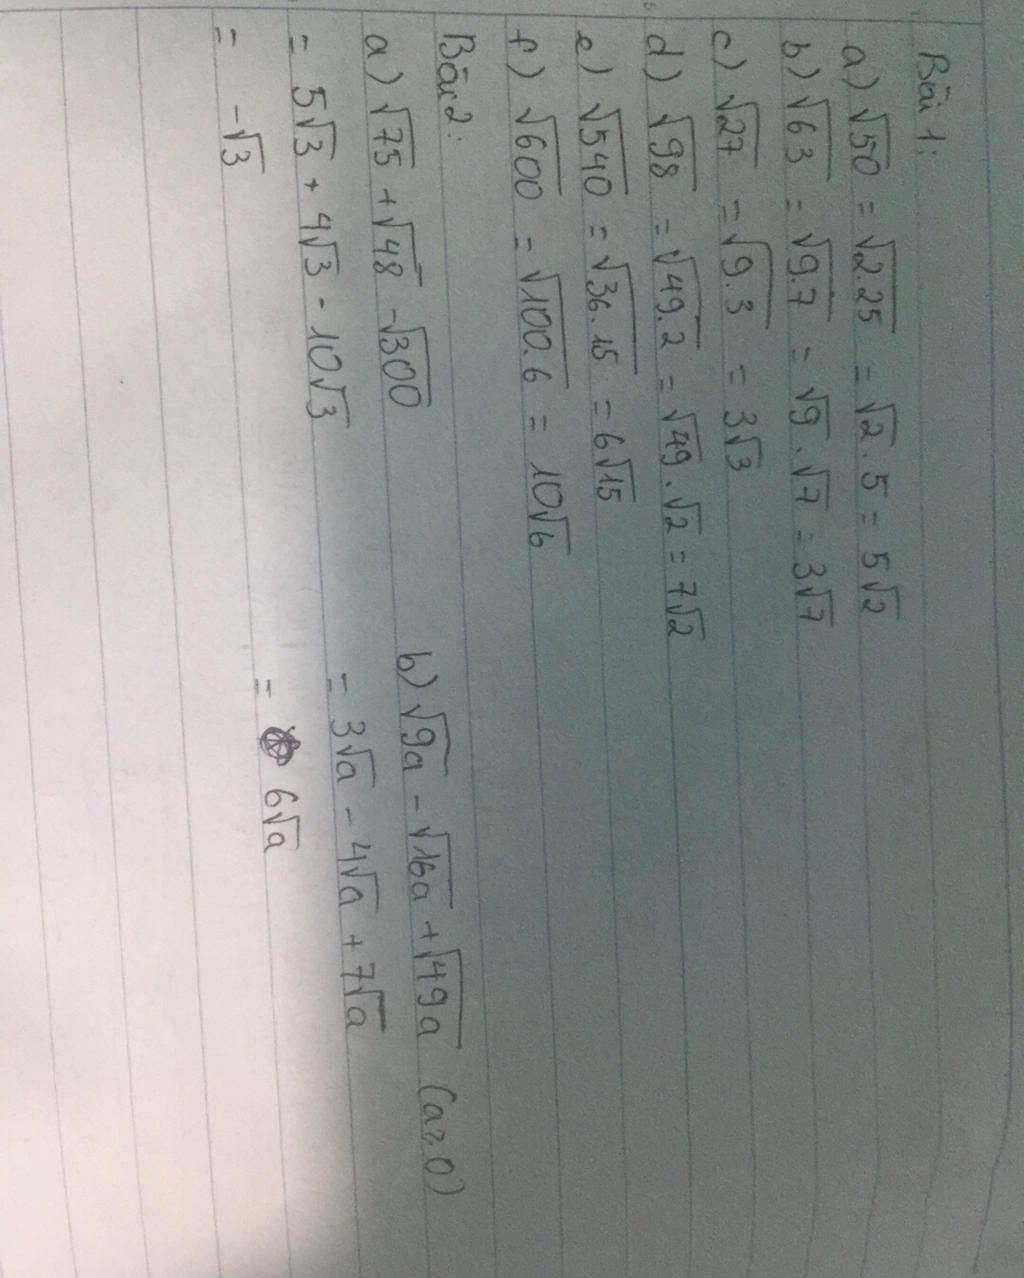 Bài 1:
a) √50 = √2.25 = √2 . 5 = 5√2
b) √63 = √9.7 = √9 . √7 = 3√7
c) √27 = √9.3 = 3√3
d) √98 = √49.2 = √49 . √2 = 7√2
e) √540 = √36.15 = 6√15
f) √600 = √100.6 = 10√6
Bài 2:
a) √75 + √48 - √300
= 5√3 + 4√3 - 10√3
= -√3
b) √9a - √16a + √49a (a≥0)
= 3√a - 4√a + 7√a
= 6√a